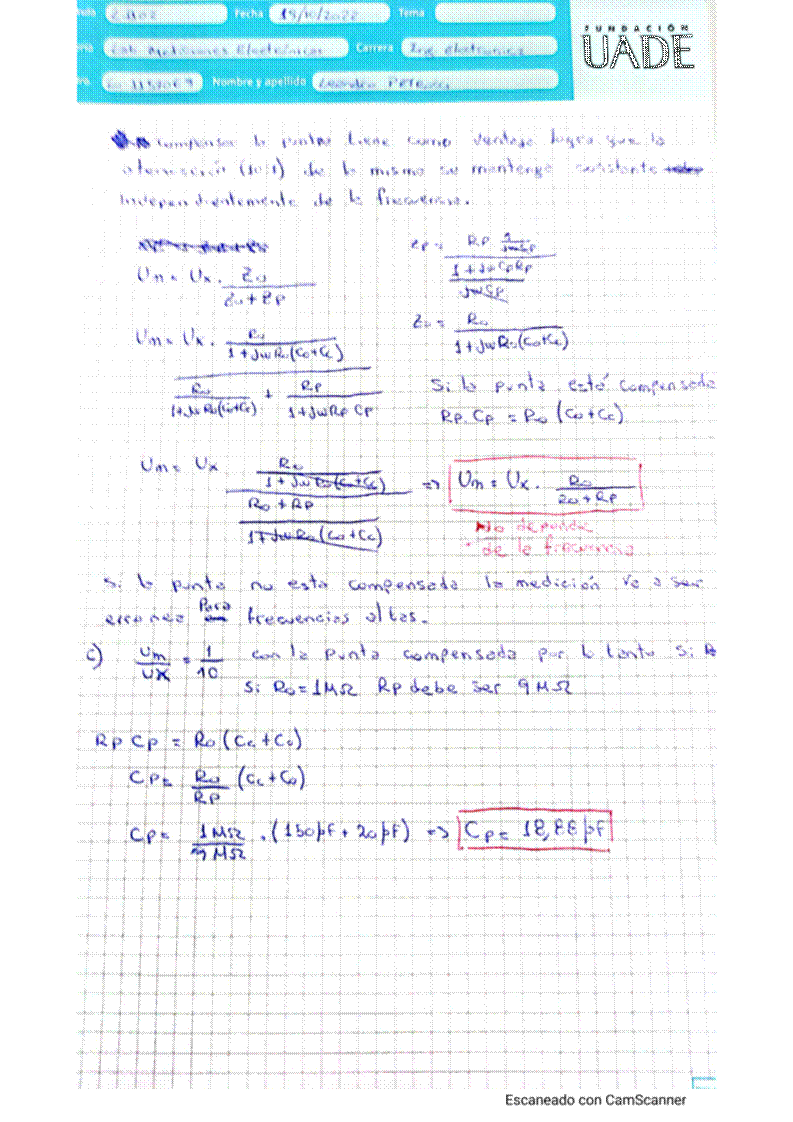 Fecha 19/11/2022 Tema
FUNDACIÓN
UADE
Lab. Mediciones Electrónicas Carrera Ing. electronica
Nombre y apellido Leandro
compensar la punta tiene como ventaja lograr que la
atenuación (10:1) de la misma se mantenga constante
independientemente de la frecuencia.
Um = Ux . Zo / (Zo + Zp)
Zp = Rp 1/(jwCp) / ((1 + jwCpRp) / (jwCp))
Zo = Ro / (1 + jwRo(Co+Cc))
Um = Ux . (Ro / (1 + jwRo(Co+Cc))) / (Ro / (1+jwRo(Co+Cc)) + Rp / (1+jwRp Cp))
Si la punta está compensada
Rp. Cp = Ro (Co+Cc)
Um = Ux (Ro / (1 + jwRo(Co+Cc))) / ((Ro + Rp) / (1+jwRo(Co+Cc))) => Um = Ux . Ro / (Ro + Rp)
No depende
de la frecuencia
Si la punta no esta compensada la medición va a ser
erronea para frecuencias altas.
c) Um/Ux = 1/10 con la punta compensada por lo tanto si
Si Ro = 1MΩ Rp debe ser 9MΩ
Rp Cp = Ro (Cc + Co)
Cp = Ro/Rp (Cc + Co)
Cp = 1MΩ/9MΩ . (150pF + 20pF) => Cp = 18,88 pF
Escaneado con CamScanner